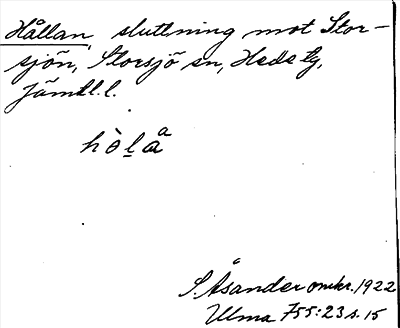 Hållan, sluttning mot Stor-
sjön, Storsjö sn, Hede tg,
Jämtl. l.
S. Åsander omkr. 1922
Ulma 755:23 s. 15